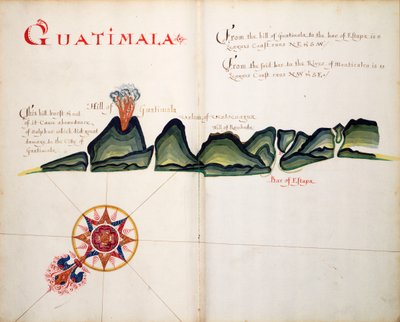 GUATIMALA
From the hill of Guatimala to the bar of Estapa is
Leagues Coast runs N.E. & S.W.
From the said bar to the River of Monticalco is
Leagues Coast runs N.W. & S.E.
This hill burst & out
of it Came abundance
of Sulphur which did great
damage to the City of
Guatimala
Hill of Guatimala
Hill of
Bar of Estapa